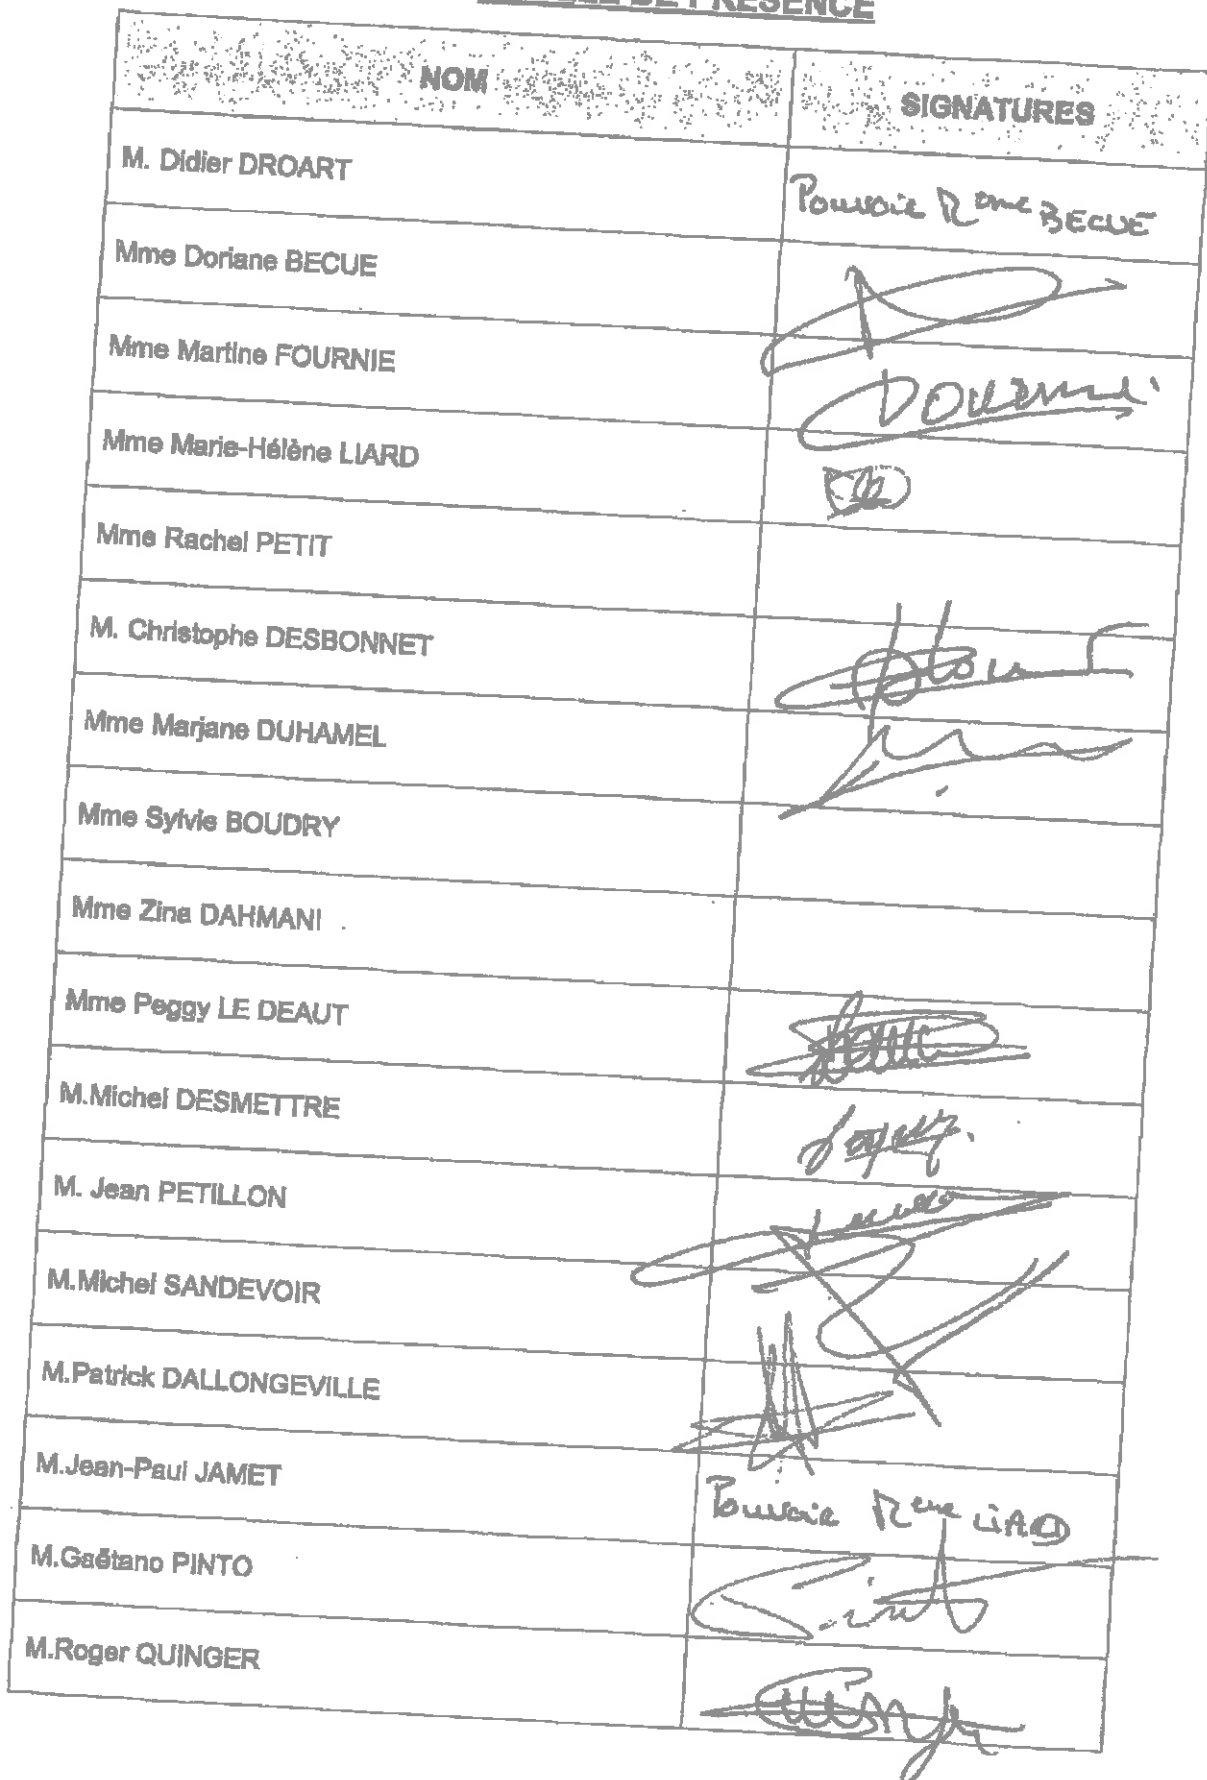 DE PRESENCE
NOM SIGNATURES
M. Didier DROART Pouvoir Mme BECUE
Mme Doriane BECUE
Mme Martine FOURNIE
Mme Marie-Hélène LIARD
Mme Rachel PETIT
M. Christophe DESBONNET
Mme Marjane DUHAMEL
Mme Sylvie BOUDRY
Mme Zina DAHMANI
Mme Peggy LE DEAUT
M.Michel DESMETTRE
M. Jean PETILLON
M.Michel SANDEVOIR
M.Patrick DALLONGEVILLE
M.Jean-Paul JAMET Pouvoir Mme LIARD
M.Gaëtano PINTO
M.Roger QUINGER